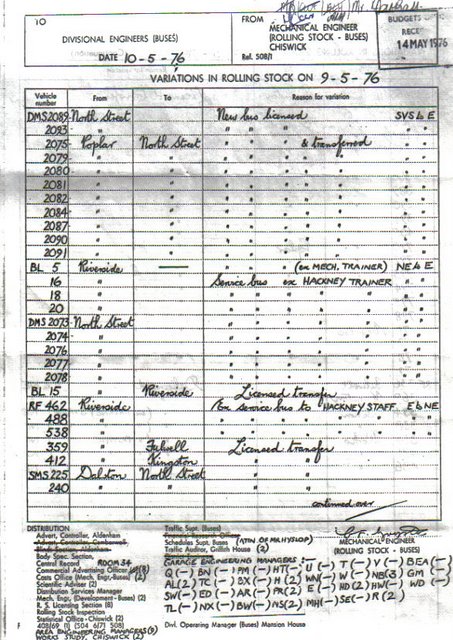 10
DIVISIONAL ENGINEERS (BUSES)
DATE 10-5-76
FROM
MECHANICAL ENGINEER
(ROLLING STOCK - BUSES)
CHISWICK
Ref. 508/1
BUDGETS
RECE
14 MAY 1976
VARIATIONS IN ROLLING STOCK ON 9-5-76
Vehicle number From To Reason for variation
DMS2089 North Street New bus licensed SVS b E
2093 " " " " " " "
2075 Poplar North Street " " " & transferred " " "
2079 " " " " " " " " " "
2080 " " " " " " " " " "
2081 " " " " " " " " " "
2082 " " " " " " " " " "
2084 " " " " " " " " " "
2087 " " " " " " " " " "
2090 " " " " " " " " " "
2091 " " " " " " " " " "
BL 5 Riverside — " " " (ex MECH. TRAINER) NE b E
16 " Service bus ex HACKNEY TRAINER " " "
18 " " " " " " " " "
20 " " " " " " " " "
DMS 2073 North Street " " " " " " " "
2074 " " " " " " " " "
2076 " " " " " " " " "
2077 " " " " " " " " "
2078 " " " " " " " " "
BL 15 Riverside Licensed transfer
RF 462 Riverside Ex service bus to HACKNEY STAFF E b NE
488 " " " " " " " " " "
538 " " " " " " " " " "
359 " Fulwell Licensed transfer
412 " Kingston " "
SMS 225 Dalston North Street " "
240 " " " "
continued over
DISTRIBUTION
Advert, Controller, Aldenham
Advert, Controller, Camberwell
Body Spec. Section,
Central Record ROOM 34
Commercial Advertising Officer (8)
Costs Office (Mech. Engr, Buses) (2)
Scientific Adviser (2)
Distribution Services Manager
Mech. Engr, (Development - Buses) (2)
R. S. Licensing Section (8)
Rolling Stock Inspection
Statistical Office - Chiswick (2)
408/69 (1) (504 6/71 508)
AREA ENGINEERING MANAGERS (9)
WORKS STUDY, CHISWICK (2)
Traffic Supt. (Buses)
Schedules Supt. Buses (ATTN OF MR HYSLOP)
Traffic Auditor, Griffith House (2)
GARAGE ENGINEERING MANAGERS:—
Q (—) BN (—) PM (—) HT (—) U (—) T (—) V (—) BEA (—)
AL (2) TC (—) BX (—) H (2) WN (—) W (—) NB (3) GM (—)
SW (—) ED (—) AR (—) PR (2) E (—) HD (2) HW (—) WD (—)
TL (—) NX (—) BW (—) NS (2) MH (—) SE (—) R (2)
Divl. Operating Manager (Buses) Mansion House
MECHANICAL ENGINEER
(ROLLING STOCK - BUSES)